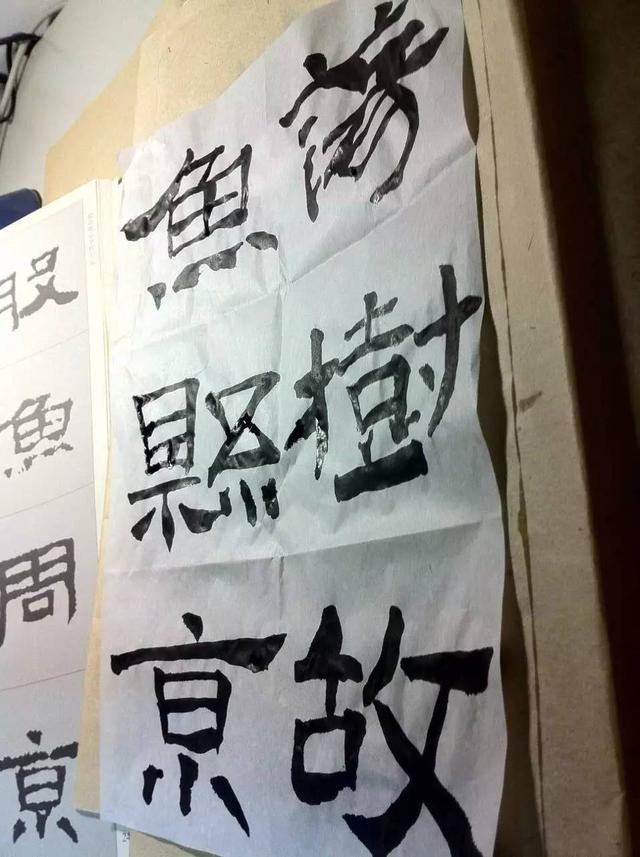 樹故
魚縣京
魚周京